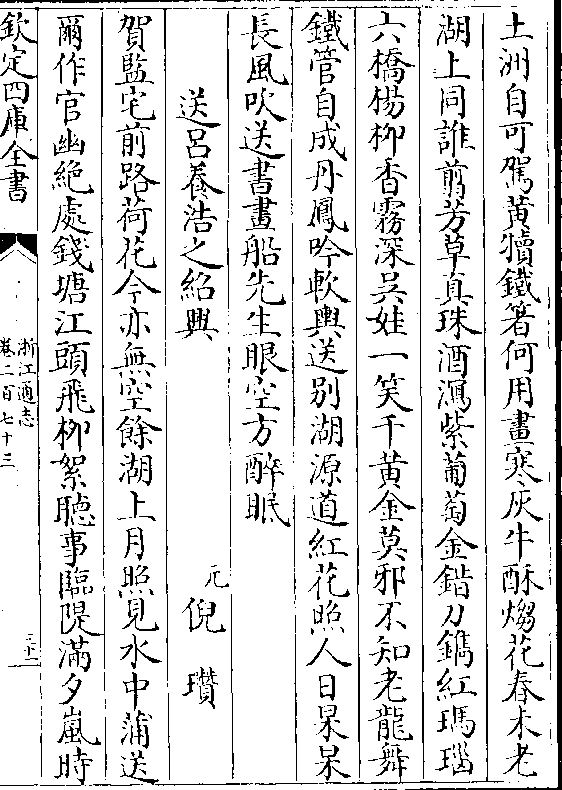 土洲自可駕黄犢鐵箸何用畫寒灰牛酥煼花春未老
湖上同誰翦芳草真珠酒濕紫葡萄金錯刀鐫紅瑪瑙
六橋楊栁香霧深吳娃一笑千黄金莫邪不知老龍舞
鐵管自成丹鳳吟軟輿送别湖源道紅花照人日杲杲
長風吹送書畫船先生眼空方醉眠
送呂養浩之紹興
元 倪瓚
賀監宅前路荷花今亦無空餘湖上月照見水中蒲送
爾作官幽絶處錢塘江頭飛栁絮聽事臨隄滿夕嵐時
欽定四庫全書
浙江通志
卷二百七十三
三十二